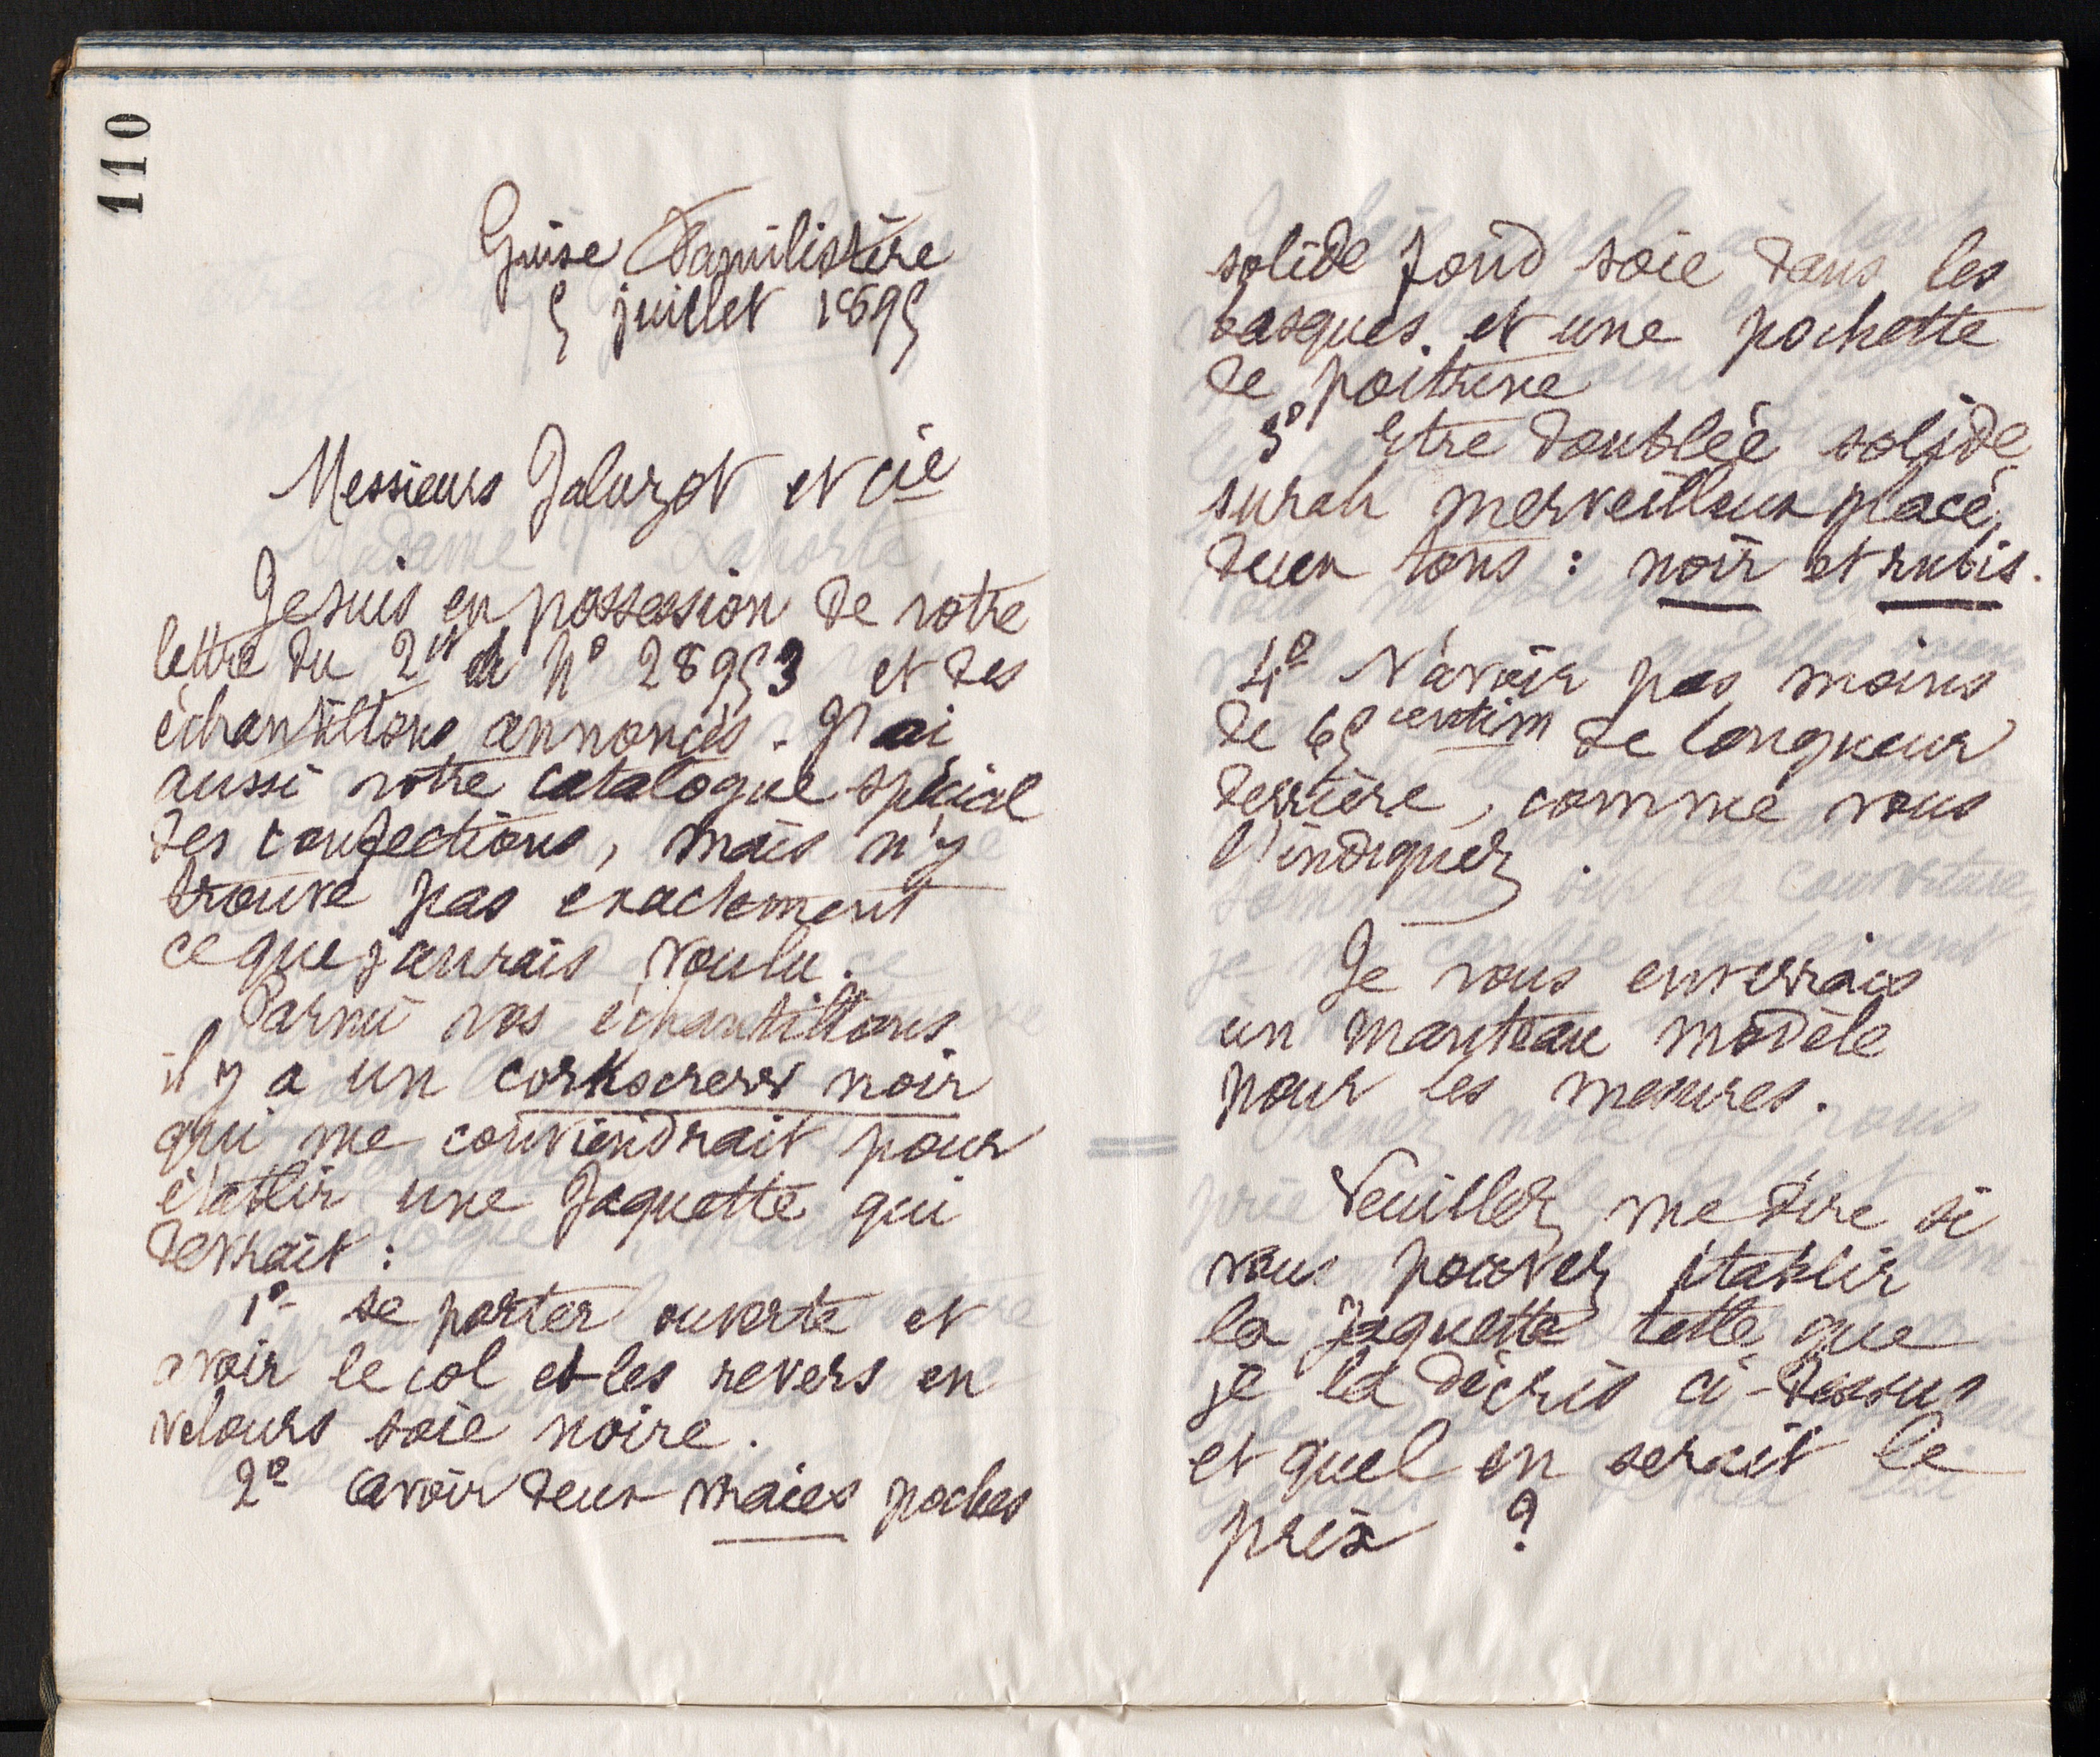 110
Guise Familistère
5 juillet 1895
Messieurs Jaluzot et cie
Je suis en possession de votre
lettre du 2 ct N° 28953 et des
échantillons annoncés. J'ai
aussi votre catalogue spécial
des confections, mais n'y
trouve pas exactement
ce que j'aurais voulu.
Parmi vos échantillons
il y a un corkscrew noir
qui me conviendrait pour
établir une Jaquette qui
devrait :
1° se porter ouverte et
avoir le col et les revers en
velours soie noire.
2° avoir deux vraies poches
solide fond soie dans les
basques et une pochette
de poitrine
3° Etre doublée solide
surah merveilleux glacé,
deux tons : noir et rubis.
4° N'avoir pas moins
de 65 centim de longueur
derrière, comme vous
l'indiquez.
Je vous enverrais
un manteau modèle
pour les mesures.
Veuillez me dire si
vous pouvez établir
la jaquette telle que
je la décris ci-dessus
et quel en serait le
prix ?